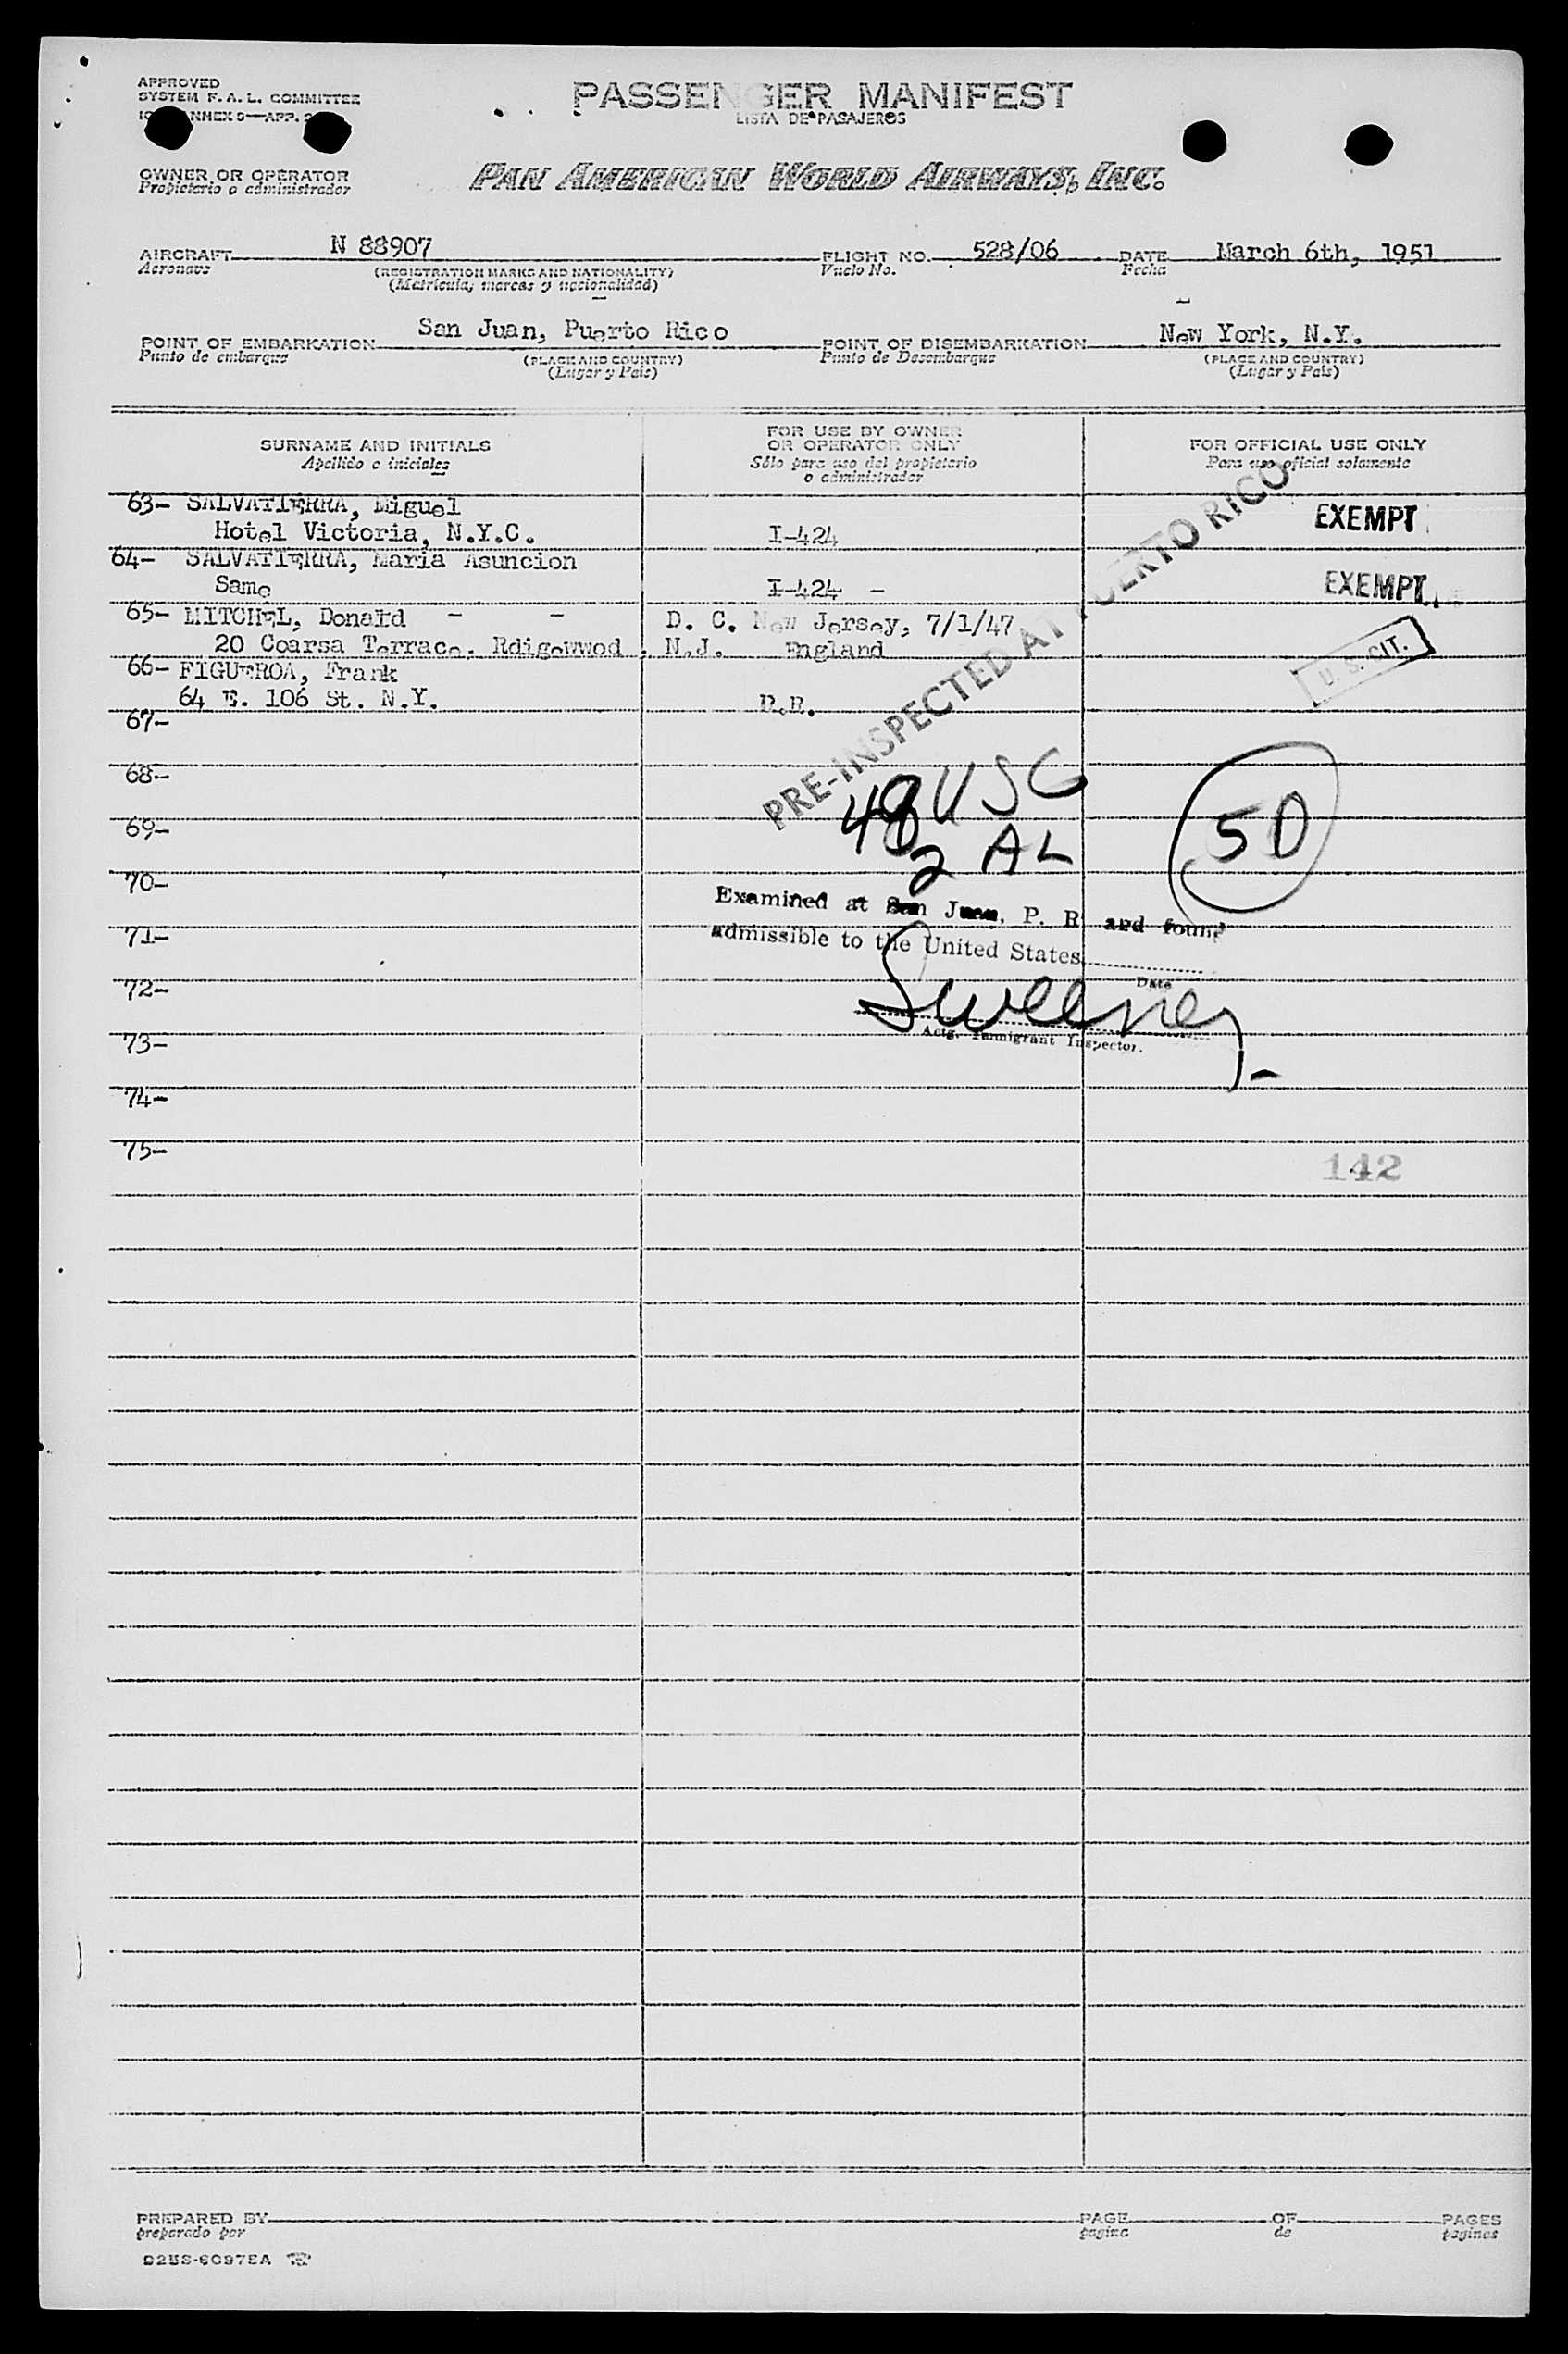 APPROVED
SYSTEM F. A. L. COMMITTEE
ANNEX 9—APP.
PASSENGER MANIFEST
LISTA DE PASAJEROS
OWNER OR OPERATOR
Propietario o administrador
PAN AMERICAN WORLD AIRWAYS, INC.
AIRCRAFT N 88907 FLIGHT NO. 528/06 DATE March 6th, 1951
Aeronave (REGISTRATION MARKS AND NATIONALITY) Vuelo No. Fecha
(Matricula, marcas y nacionalidad)
POINT OF EMBARKATION San Juan, Puerto Rico POINT OF DISEMBARKATION New York, N.Y.
Punto de embarque (PLACE AND COUNTRY) Punto de Desembarque (PLACE AND COUNTRY)
(Lugar y Pais) (Lugar y Pais)
SURNAME AND INITIALS FOR USE BY OWNER OR OPERATOR ONLY FOR OFFICIAL USE ONLY
Apellido e iniciales Sólo para uso del propietario o administrador Para uso oficial solamente
63- SALVATIERRA, Miguel EXEMPT
Hotel Victoria, N.Y.C. I-424
64- SALVATIERRA, Maria Asuncion
Same I-424 - EXEMPT
65- MITCHEL, Donald - - D. C. New Jersey, 7/1/47
20 Coarsa Terrace, Rdigewwod N.J. England U. S. CIT.
66- FIGUEROA, Frank
64 E. 106 St. N.Y. P.R.
67-
68-
69-
70-
71-
72-
73-
74-
75-
PRE-INSPECTED AT PUERTO RICO
48 USC
2 AL
50
Examined at San Juan, P. R. and found
admissible to the United States
Date
Sweeney
Actg. Immigrant Inspector.
142
PREPARED BY PAGE OF PAGES
preparado por pagina de paginas